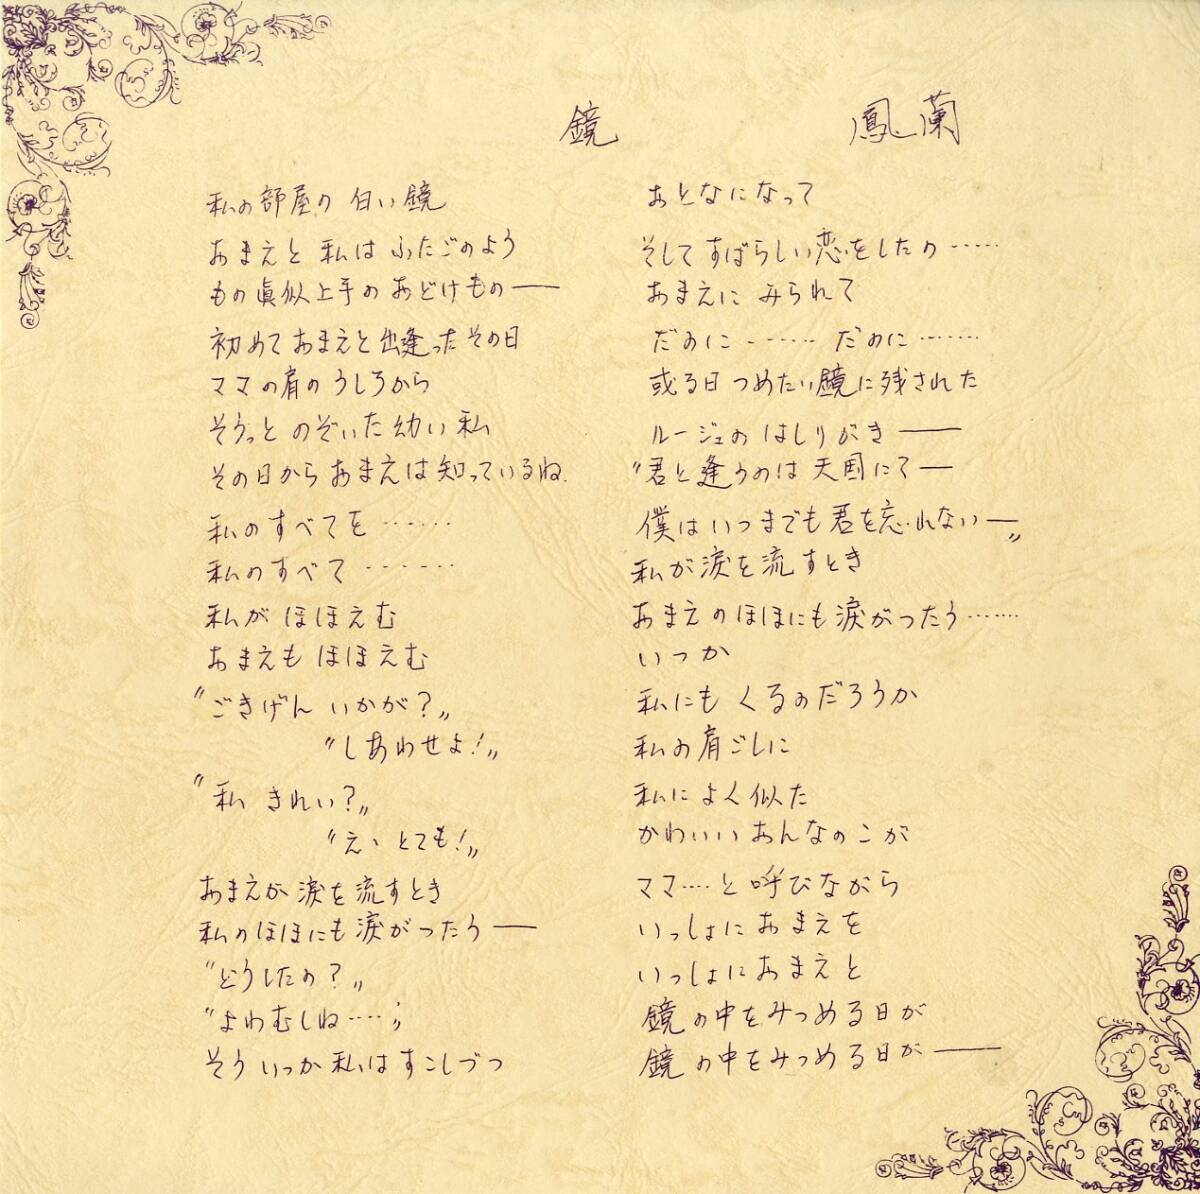 鏡 鳳蘭
私の部屋の 白い鏡
あまえと 私は ふたごのよう
もの眞似上手の あどけもの——
初めて あまえと 出逢った その日
ママの肩の うしろから
そうっと のぞいた 幼い 私
その日から あまえは 知っているね.
私の すべてを ‥‥‥
私の すべて ‥‥‥
私が ほほえむ
あまえも ほほえむ
〝ごきげん いかが?〟
〝しあわせよ!〟
〝私 きれい?〟
〝えゝ とても!〟
あまえが 涙を 流すとき
私の ほほにも 涙が つたう——
〝どうしたの?〟
〝よわむしね‥‥〟
そう いつか 私は すこしづつ
あとなになって
そして すばらしい 恋をしたの ‥‥‥
あまえに みられて
だのに ‥‥‥ だのに ‥‥‥
或る日 つめたい 鏡に 残された
ルージュの はしりがき——
〝君と 逢うのは 天国にて—
僕は いつまでも 君を 忘れない—〟
私が 涙を 流すとき
あまえの ほほにも 涙が つたう ‥‥‥
いつか
私にも くるのだろうか
私の 肩ごしに
私に よく 似た
かわいい あんなのこが
ママ‥‥と 呼びながら
いっしょに あまえを
いっしょに あまえと
鏡の中を みつめる 日が
鏡の中を みつめる 日が——